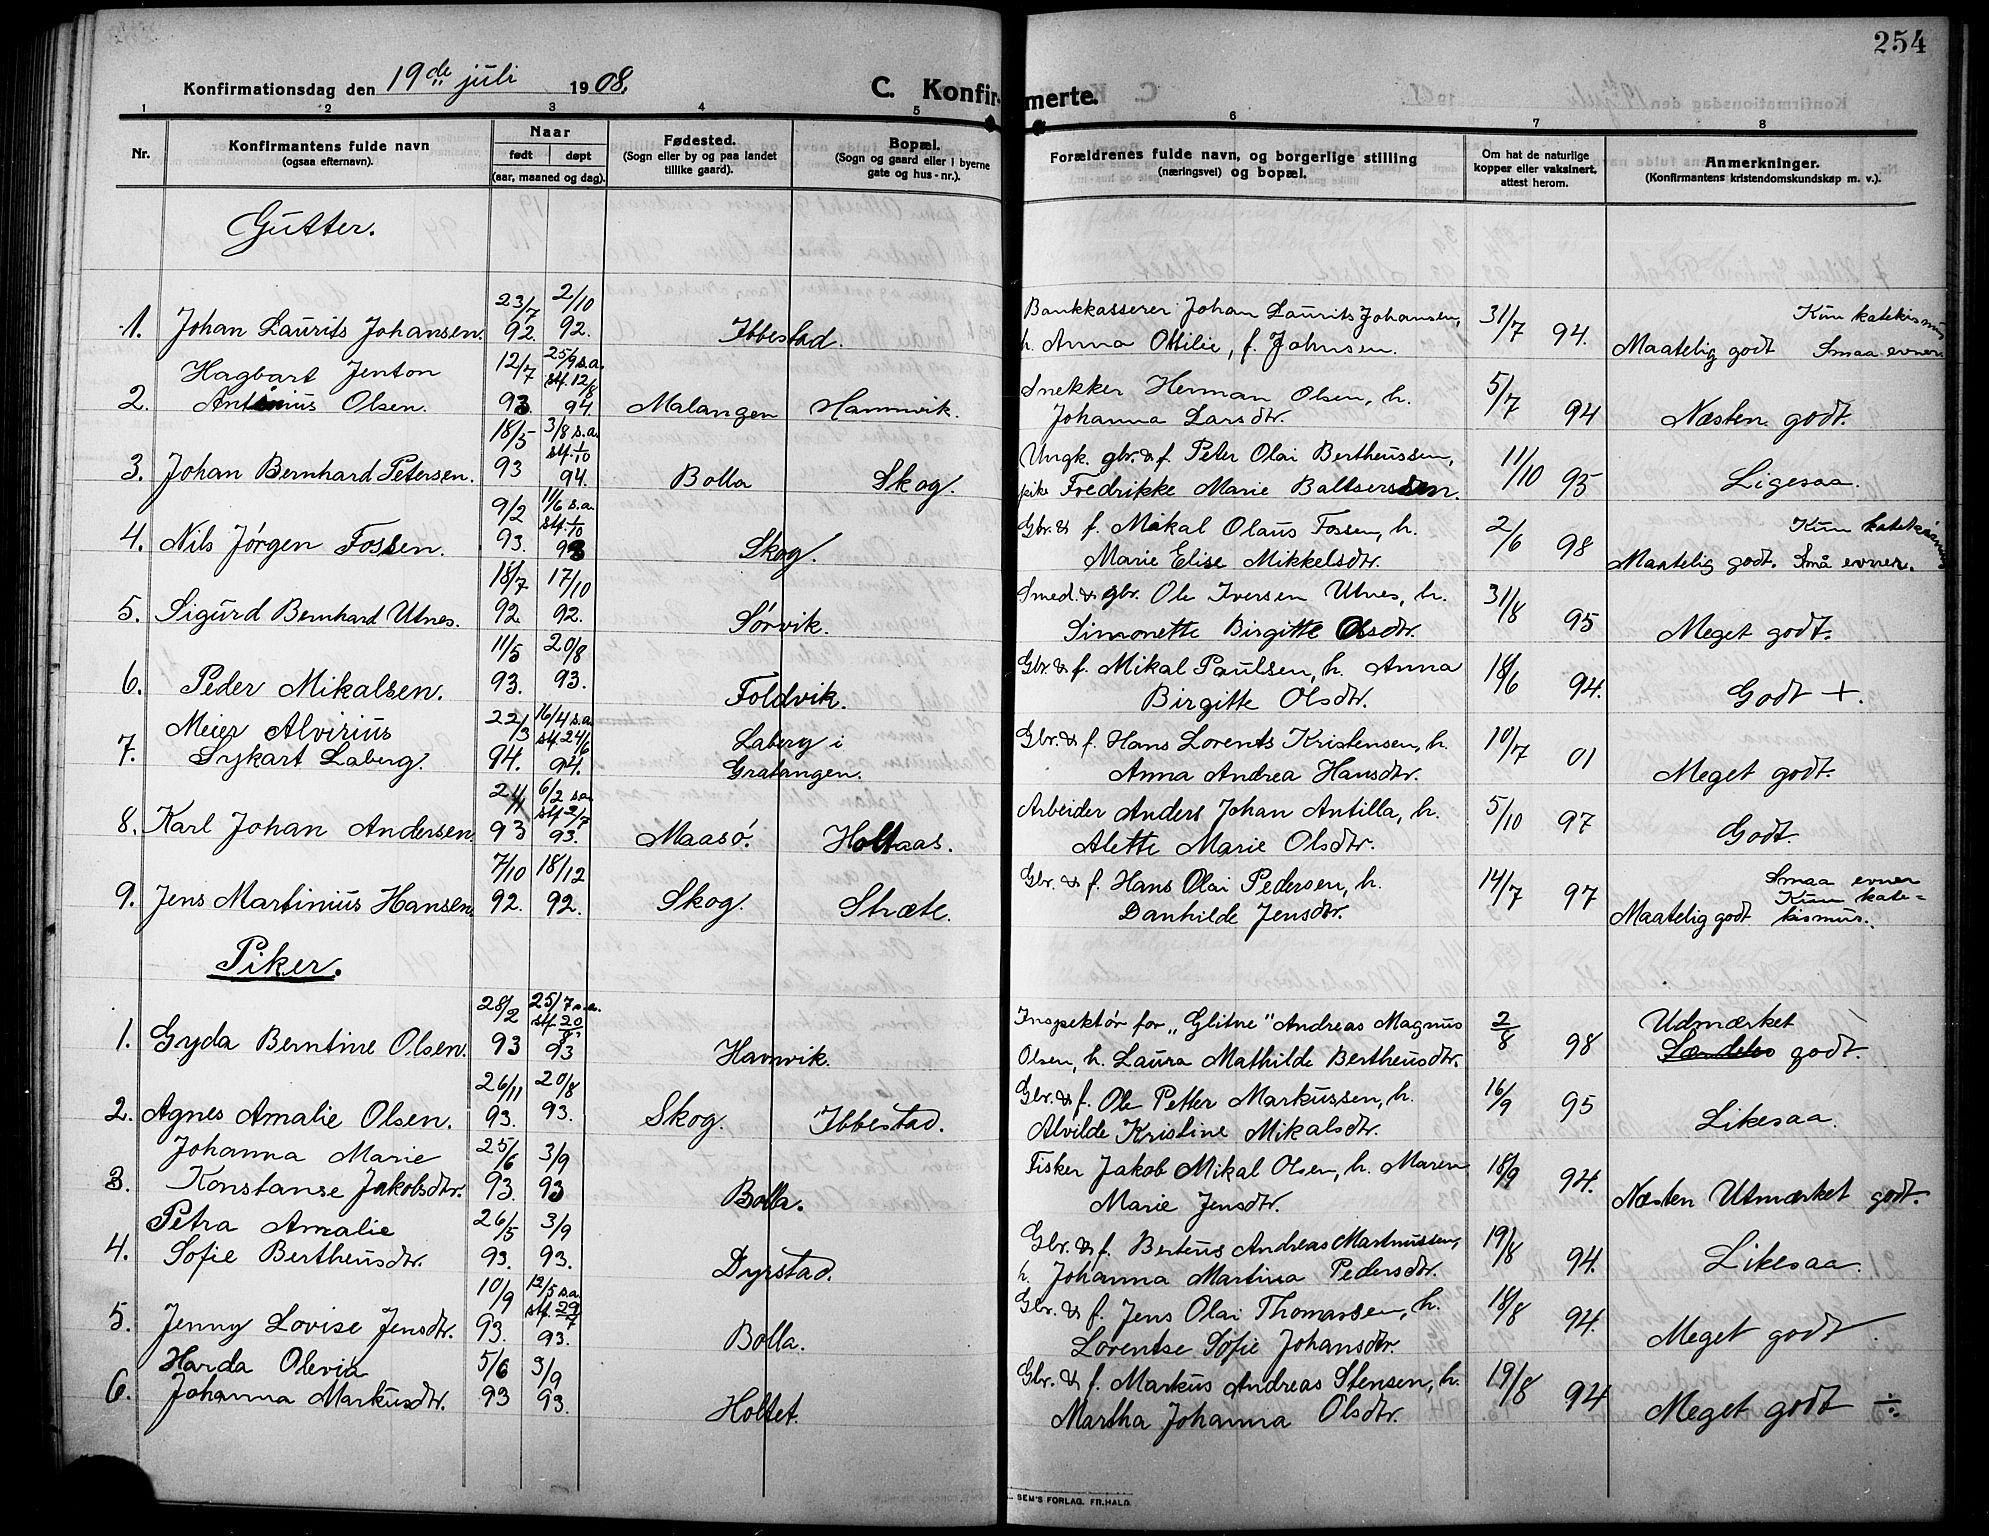 254
Konfirmationsdag den 19de juli 1908.
C. Konfirmerte.
1 2 3 4 5 6 7 8
Nr.
Konfirmantens fulde navn
(ogsaa efternavn).
Naar
født døpt
(aar, maaned og dag).
Fødested.
(Sogn eller by og paa landet
tillike gaard).
Bopæl.
(Sogn og gaard eller i byerne
gate og hus-nr.).
Forældrenes fulde navn, og borgerlige stilling
(næringsvei) og bopæl.
Om hat de naturlige
kopper eller vaksinert,
attest herom.
Anmerkninger.
(Konfirmantens kristendomskundskap m. v.).
Gutter.
1. Johan Laurits Johansen. 23/7 92. 2/10 92. Ibbestad. Bankkasserer Johan Laurits Johansen,
h. Anna Ottilie, f. Johnsen. 31/7 94. Maatelig godt Kun katekismus
Smaa evner.
Hagbart Jenton
2. Antonius Olsen. 12/7 93. 25/9 s.a. stf. 12/8 94. Malangen Hamnvik. Snekker Herman Olsen, h.
Johanna Larsdtr. 5/7 94 Næsten godt.
3. Johan Bernhard Petersen. 18/5 93 3/8 s.a. stf. 1/10 94. Bolla Skog. Ungk. gbr. & f. Peter Olai Bertheussen,
pike Fredrikke Marie Baltsersen. 11/10 95 Ligesaa.
4. Nils Jørgen Fossen. 9/2 93. 11/6 s.a. stf. 1/10 93 Skog. Gbr. & f. Mikal Olaus Fossen, h.
Marie Elise Mikkelsdtr. 2/6 98 Maatelig godt. Kun
Små evner.
5. Sigurd Bernhard Utnes. 18/7 92. 17/10 92. Sørvik. Smed. & gbr. Ole Iversen Utnes, h.
Simonette Birgitte Olsdtr. 31/8 95 Meget godt.
6. Peder Mikalsen. 11/5 93. 20/8 93. Foldvik. Gbr. & f. Mikal Paulsen, h. Anna
Birgitte Olsdtr. 18/6 94. Godt +.
Meier Alvirius
7. Sykart Laberg. 22/3 94. 16/4 s.a. stf. 24/6 94. Laberg i
Gratangen. Gbr. & f. Hans Lorents Kristensen, h.
Anna Andrea Hansdtr. 10/7 01 Meget godt.
8. Karl Johan Andersen 93 6/2 s.a. stf. 2/7 93. Maasø. Holtaas. Arbeider Anders Johan Antilla, h.
Alette Marie Olsdtr. 5/10 97 Godt.
9. Jens Martinius Hansen 7/10 92. 18/12 92. Skog. Stræte. Gbr. & f. Hans Olai Pedersen, h.
Danhilde Jensdtr. 14/7 97 Maatelig godt Smaa evner
Kun kate-
kismus.
Piker.
1. Gyda Berntine Olsen. 28/2 93 25/7 s.a. stf. 20/8 93 Havnvik. Inspektør for „Glitne" Andreas Magnus
Olsen, h. Laura Mathilde Bertheusdtr. 2/8 98 Udmærket
godt.
2. Agnes Amalie Olsen. 26/11 93. 20/8 93. Skog. Ibbestad. Gbr. & f. Ole Petter Markussen, h.
Alvilde Kristine Mikalsdtr. 16/9 95 Likesaa.
Johanna Marie
3. Konstanse Jakobsdtr. 25/6 93. 3/9 93 Bolla. Fisker Jakob Mikal Olsen, h. Maren
Marie Jensdtr. 18/9 94. Næsten Utmærket godt.
Petra Amalie
4. Sofie Bertheusdtr. 26/5 93. 3/9 93. Dyrstad. Gbr. & f. Berteus Andreas Martinussen,
h. Johanna Martina Pedersdtr. 19/8 94. Likesaa.
5. Jenny Lovise Jensdtr. 10/9 93. 12/5 s.a. stf. 29/7 93. Bolla. Gbr. & f. Jens Olai Thomassen, h.
Lorentse Sofie Johansdtr. 18/8 94. Meget godt
Harda Olevia
6. Johanna Markusdtr. 5/6 93 3/9 93. Holtet. Gbr. & f. Markus Andreas Stensen, h.
Martha Johanna Olsdtr. 19/8 94 Meget godt ÷.
SEM'S FORLAG. FR.HALD.